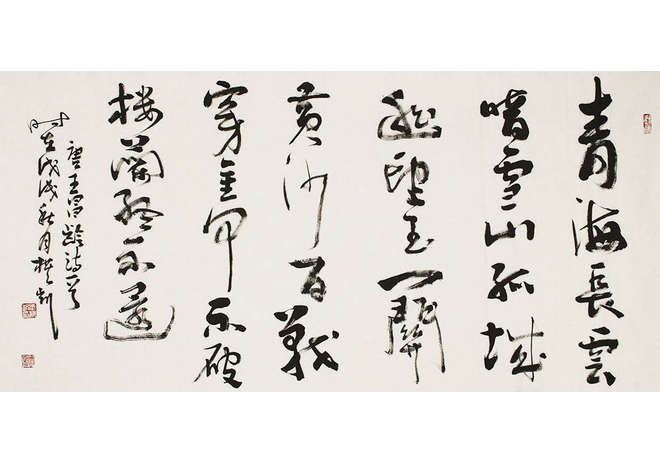 青海長雲
暗雪山孤城
遥望玉門關
黄沙百戰
穿金甲不破
楼蘭終不還
唐王昌齡詩一首
時在戊戌秋月